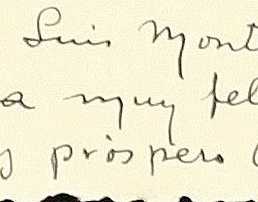 Luis Mont
a muy fel
y próspero